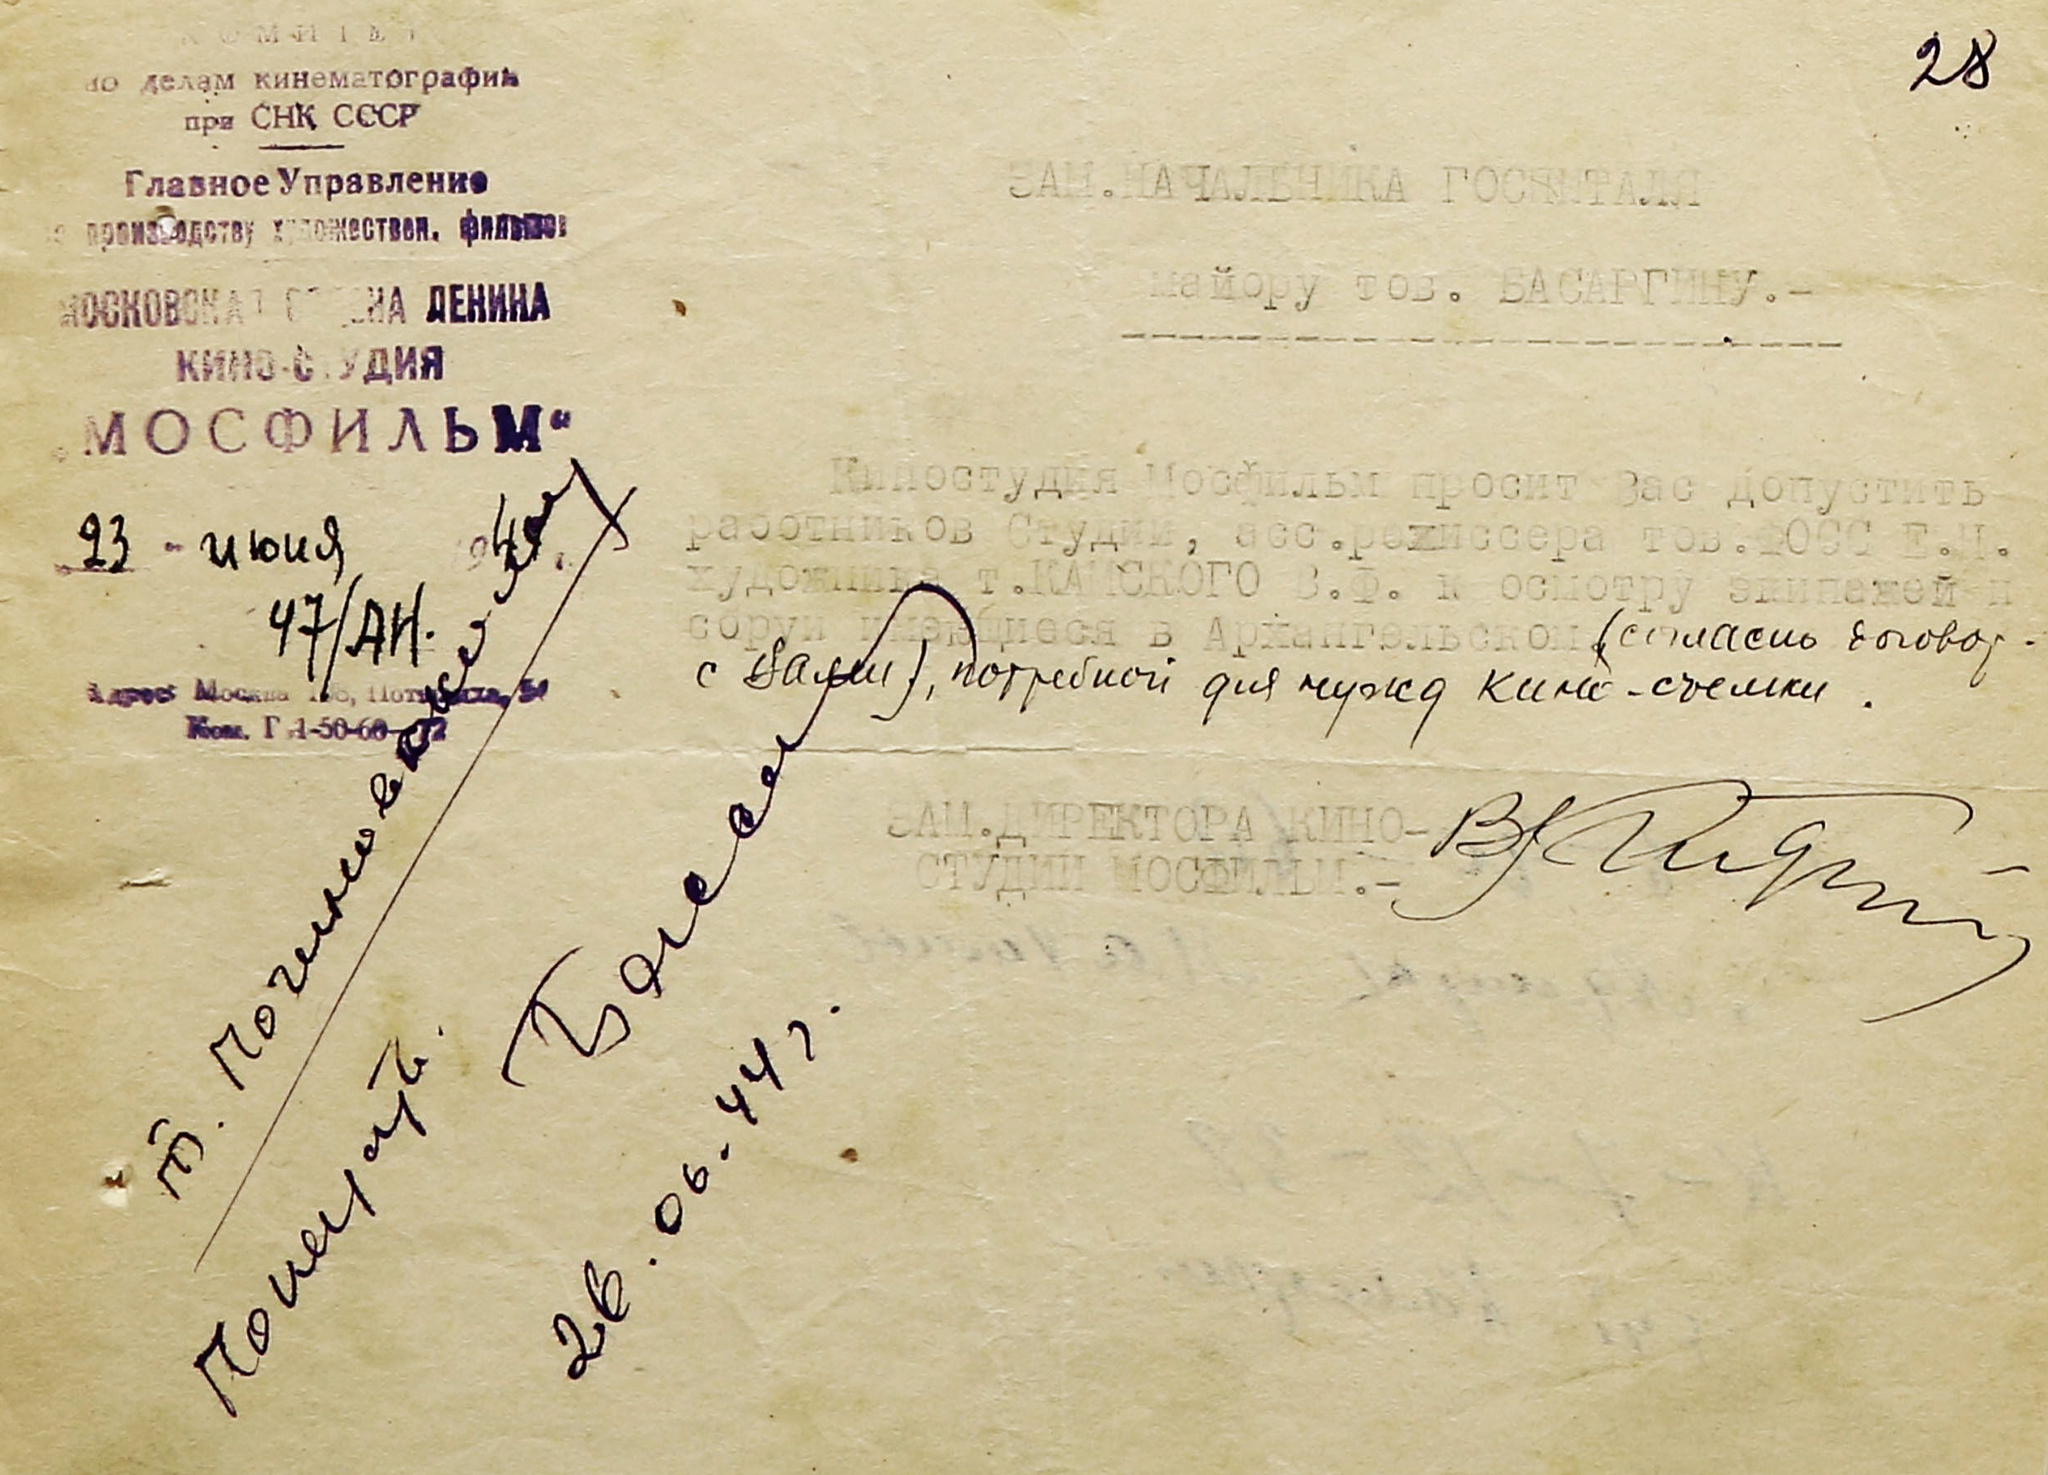 28
КОМИТЕТ
по делам кинематографии
при СНК СССР
Главное Управление
по производству художествен. фильмов
МОСКОВСКАЯ ОРДЕНА ЛЕНИНА
КИНО-СТУДИЯ
„МОСФИЛЬМ“
23 - июня 1944 г.
47/АН.
Адрес Москва
Ком. Г 1-50-60
ЗАМ.НАЧАЛЬНИКА ГОСПИТАЛЯ
майору тов. БАСАРГИНУ.-
Киностудия Мосфильм просит Вас допустить
работников Студии, асс.режиссера тов.ФОСС Е.Н.
художника т.КАМСКОГО В.Ф. к осмотру экипажей и
сбруи имеющиеся в Архангельском (согласно договор-
с Вами), потребной для нужд кино-съемки.
ЗАМ.ДИРЕКТОРА КИНО-
СТУДИИ МОСФИЛЬМ.-
т.
Показать.
26.06.44 г.